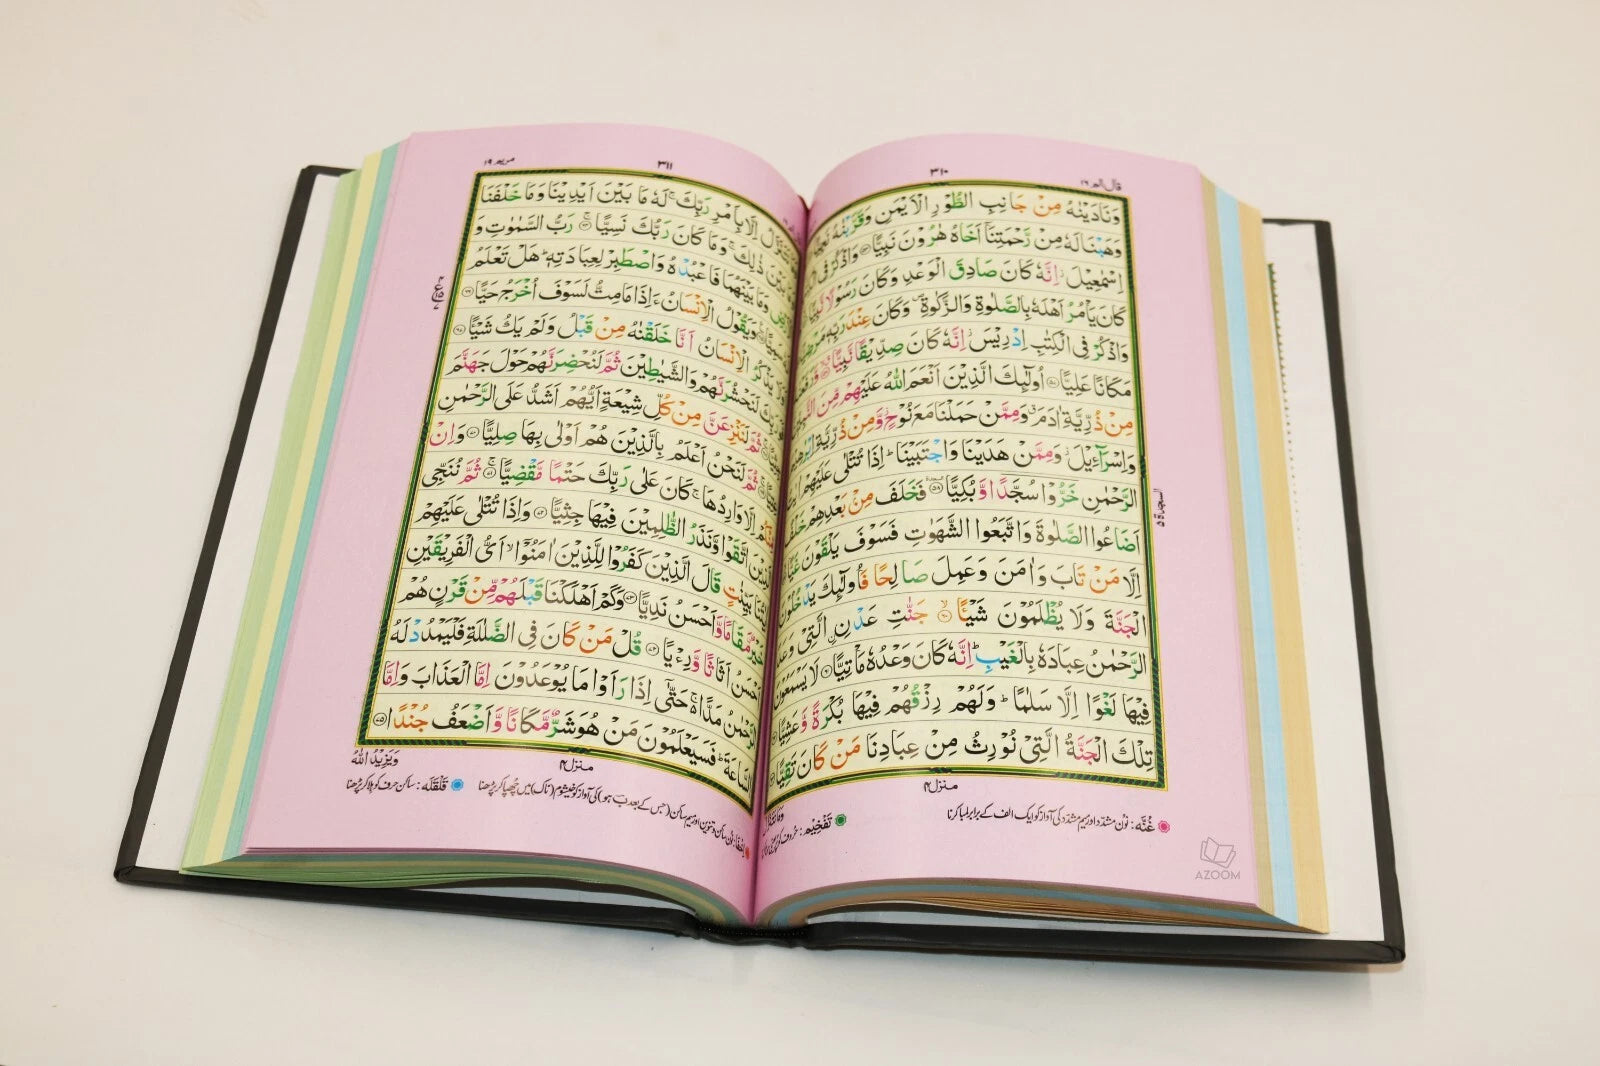 قال الم ١٦
٣١٠
وَنَادَيْنٰهُ مِنْ جَانِبِ الطُّوْرِ الْاَيْمَنِ وَقَرَّبْنٰهُ
وَوَهَبْنَا لَهٗ مِنْ رَّحْمَتِنَاۤ اَخَاهُ هٰرُوْنَ نَبِيًّا ۝٥٣ وَاذْكُرْ فِى
اِسْمٰعِيْلَ اِنَّهٗ كَانَ صَادِقَ الْوَعْدِ وَكَانَ رَسُوْلًا نَّبِيًّا
كَانَ يَاْمُرُ اَهْلَهٗ بِالصَّلٰوةِ وَالزَّكٰوةِ وَكَانَ عِنْدَ رَبِّهٖ
وَاذْكُرْ فِى الْكِتٰبِ اِدْرِيْسَ اِنَّهٗ كَانَ صِدِّيْقًا نَّبِيًّا
مَكَانًا عَلِيًّا ۝٥٧ اُولٰٓئِكَ الَّذِيْنَ اَنْعَمَ اللّٰهُ عَلَيْهِمْ مِّنَ
مِنْ ذُرِّيَّةِ اٰدَمَ وَمِمَّنْ حَمَلْنَا مَعَ نُوْحٍ وَّمِنْ ذُرِّيَّةِ
وَاِسْرَآءِيْلَ وَمِمَّنْ هَدَيْنَا وَاجْتَبَيْنَا اِذَا تُتْلٰى عَلَيْهِمْ
الرَّحْمٰنِ خَرُّوْا سُجَّدًا وَّبُكِيًّا ۝٥٨ فَخَلَفَ مِنْۢ بَعْدِهِمْ خَلْفٌ
اَضَاعُوا الصَّلٰوةَ وَاتَّبَعُوا الشَّهَوٰتِ فَسَوْفَ يَلْقَوْنَ غَيًّا
اِلَّا مَنْ تَابَ وَاٰمَنَ وَعَمِلَ صَالِحًا فَاُولٰٓئِكَ يَدْخُلُوْنَ
الْجَنَّةَ وَلَا يُظْلَمُوْنَ شَيْـًٔا ۝٦٠ جَنّٰتِ عَدْنِ الَّتِىْ وَعَدَ
الرَّحْمٰنُ عِبَادَهٗ بِالْغَيْبِ اِنَّهٗ كَانَ وَعْدُهٗ مَاْتِيًّا ۝٦١ لَا يَسْمَعُوْنَ
فِيْهَا لَغْوًا اِلَّا سَلٰمًا وَلَهُمْ رِزْقُهُمْ فِيْهَا بُكْرَةً وَّعَشِيًّا
تِلْكَ الْجَنَّةُ الَّتِىْ نُوْرِثُ مِنْ عِبَادِنَا مَنْ كَانَ تَقِيًّا
السجدة ٥
منزل ٤
غُنَّہ: نون مشدّد اور میم مشدّد کی آواز کو ایک الف کے برابر لمبا کرنا
تَفْخِیْم: حروف کو
AZOOM
مريم ١٩
٣١١
اِلَّا بِاَمْرِ رَبِّكَ لَهٗ مَا بَيْنَ اَيْدِيْنَا وَمَا خَلْفَنَا
بَيْنَ ذٰلِكَ وَمَا كَانَ رَبُّكَ نَسِيًّا ۝٦٤ رَبُّ السَّمٰوٰتِ وَ
وَمَا بَيْنَهُمَا فَاعْبُدْهُ وَاصْطَبِرْ لِعِبَادَتِهٖ هَلْ تَعْلَمُ
وَيَقُوْلُ الْاِنْسَانُ ءَاِذَا مَا مِتُّ لَسَوْفَ اُخْرَجُ حَيًّا ۝٦٦
يَذْكُرُ الْاِنْسَانُ اَنَّا خَلَقْنٰهُ مِنْ قَبْلُ وَلَمْ يَكُ شَيْـًٔا ۝٦٧
لَنَحْشُرَنَّهُمْ وَالشَّيٰطِيْنَ ثُمَّ لَنُحْضِرَنَّهُمْ حَوْلَ جَهَنَّمَ
ثُمَّ لَنَنْزِعَنَّ مِنْ كُلِّ شِيْعَةٍ اَيُّهُمْ اَشَدُّ عَلَى الرَّحْمٰنِ
ثُمَّ لَنَحْنُ اَعْلَمُ بِالَّذِيْنَ هُمْ اَوْلٰى بِهَا صِلِيًّا ۝٧٠ وَاِنْ
اِلَّا وَارِدُهَا كَانَ عَلٰى رَبِّكَ حَتْمًا مَّقْضِيًّا ۝٧١ ثُمَّ نُنَجِّى
اتَّقَوْا وَّنَذَرُ الظّٰلِمِيْنَ فِيْهَا جِثِيًّا ۝٧٢ وَاِذَا تُتْلٰى عَلَيْهِمْ
بَيِّنٰتٍ قَالَ الَّذِيْنَ كَفَرُوْا لِلَّذِيْنَ اٰمَنُوْۤا اَىُّ الْفَرِيْقَيْنِ
خَيْرٌ مَّقَامًا وَّاَحْسَنُ نَدِيًّا ۝٧٣ وَكَمْ اَهْلَكْنَا قَبْلَهُمْ مِّنْ قَرْنٍ هُمْ
اَحْسَنُ اَثَاثًا وَّرِءْيًا ۝٧٤ قُلْ مَنْ كَانَ فِى الضَّلٰلَةِ فَلْيَمْدُدْ لَهُ
الرَّحْمٰنُ مَدًّا حَتّٰۤى اِذَا رَاَوْا مَا يُوْعَدُوْنَ اِمَّا الْعَذَابَ وَاِمَّا
السَّاعَةَ فَسَيَعْلَمُوْنَ مَنْ هُوَ شَرٌّ مَّكَانًا وَّاَضْعَفُ جُنْدًا ۝٧٥
منزل ٤
وَيَزِيْدُ اللّٰهُ
اِخْفَا: نون ساکن و تنوین اور میم ساکن (جس کے بعد ب ہو) کی آواز کو خیشوم (ناک) میں چھپا کر پڑھنا
قَلْقَلَہ: ساکن حرف کو ہلا کر پڑھنا